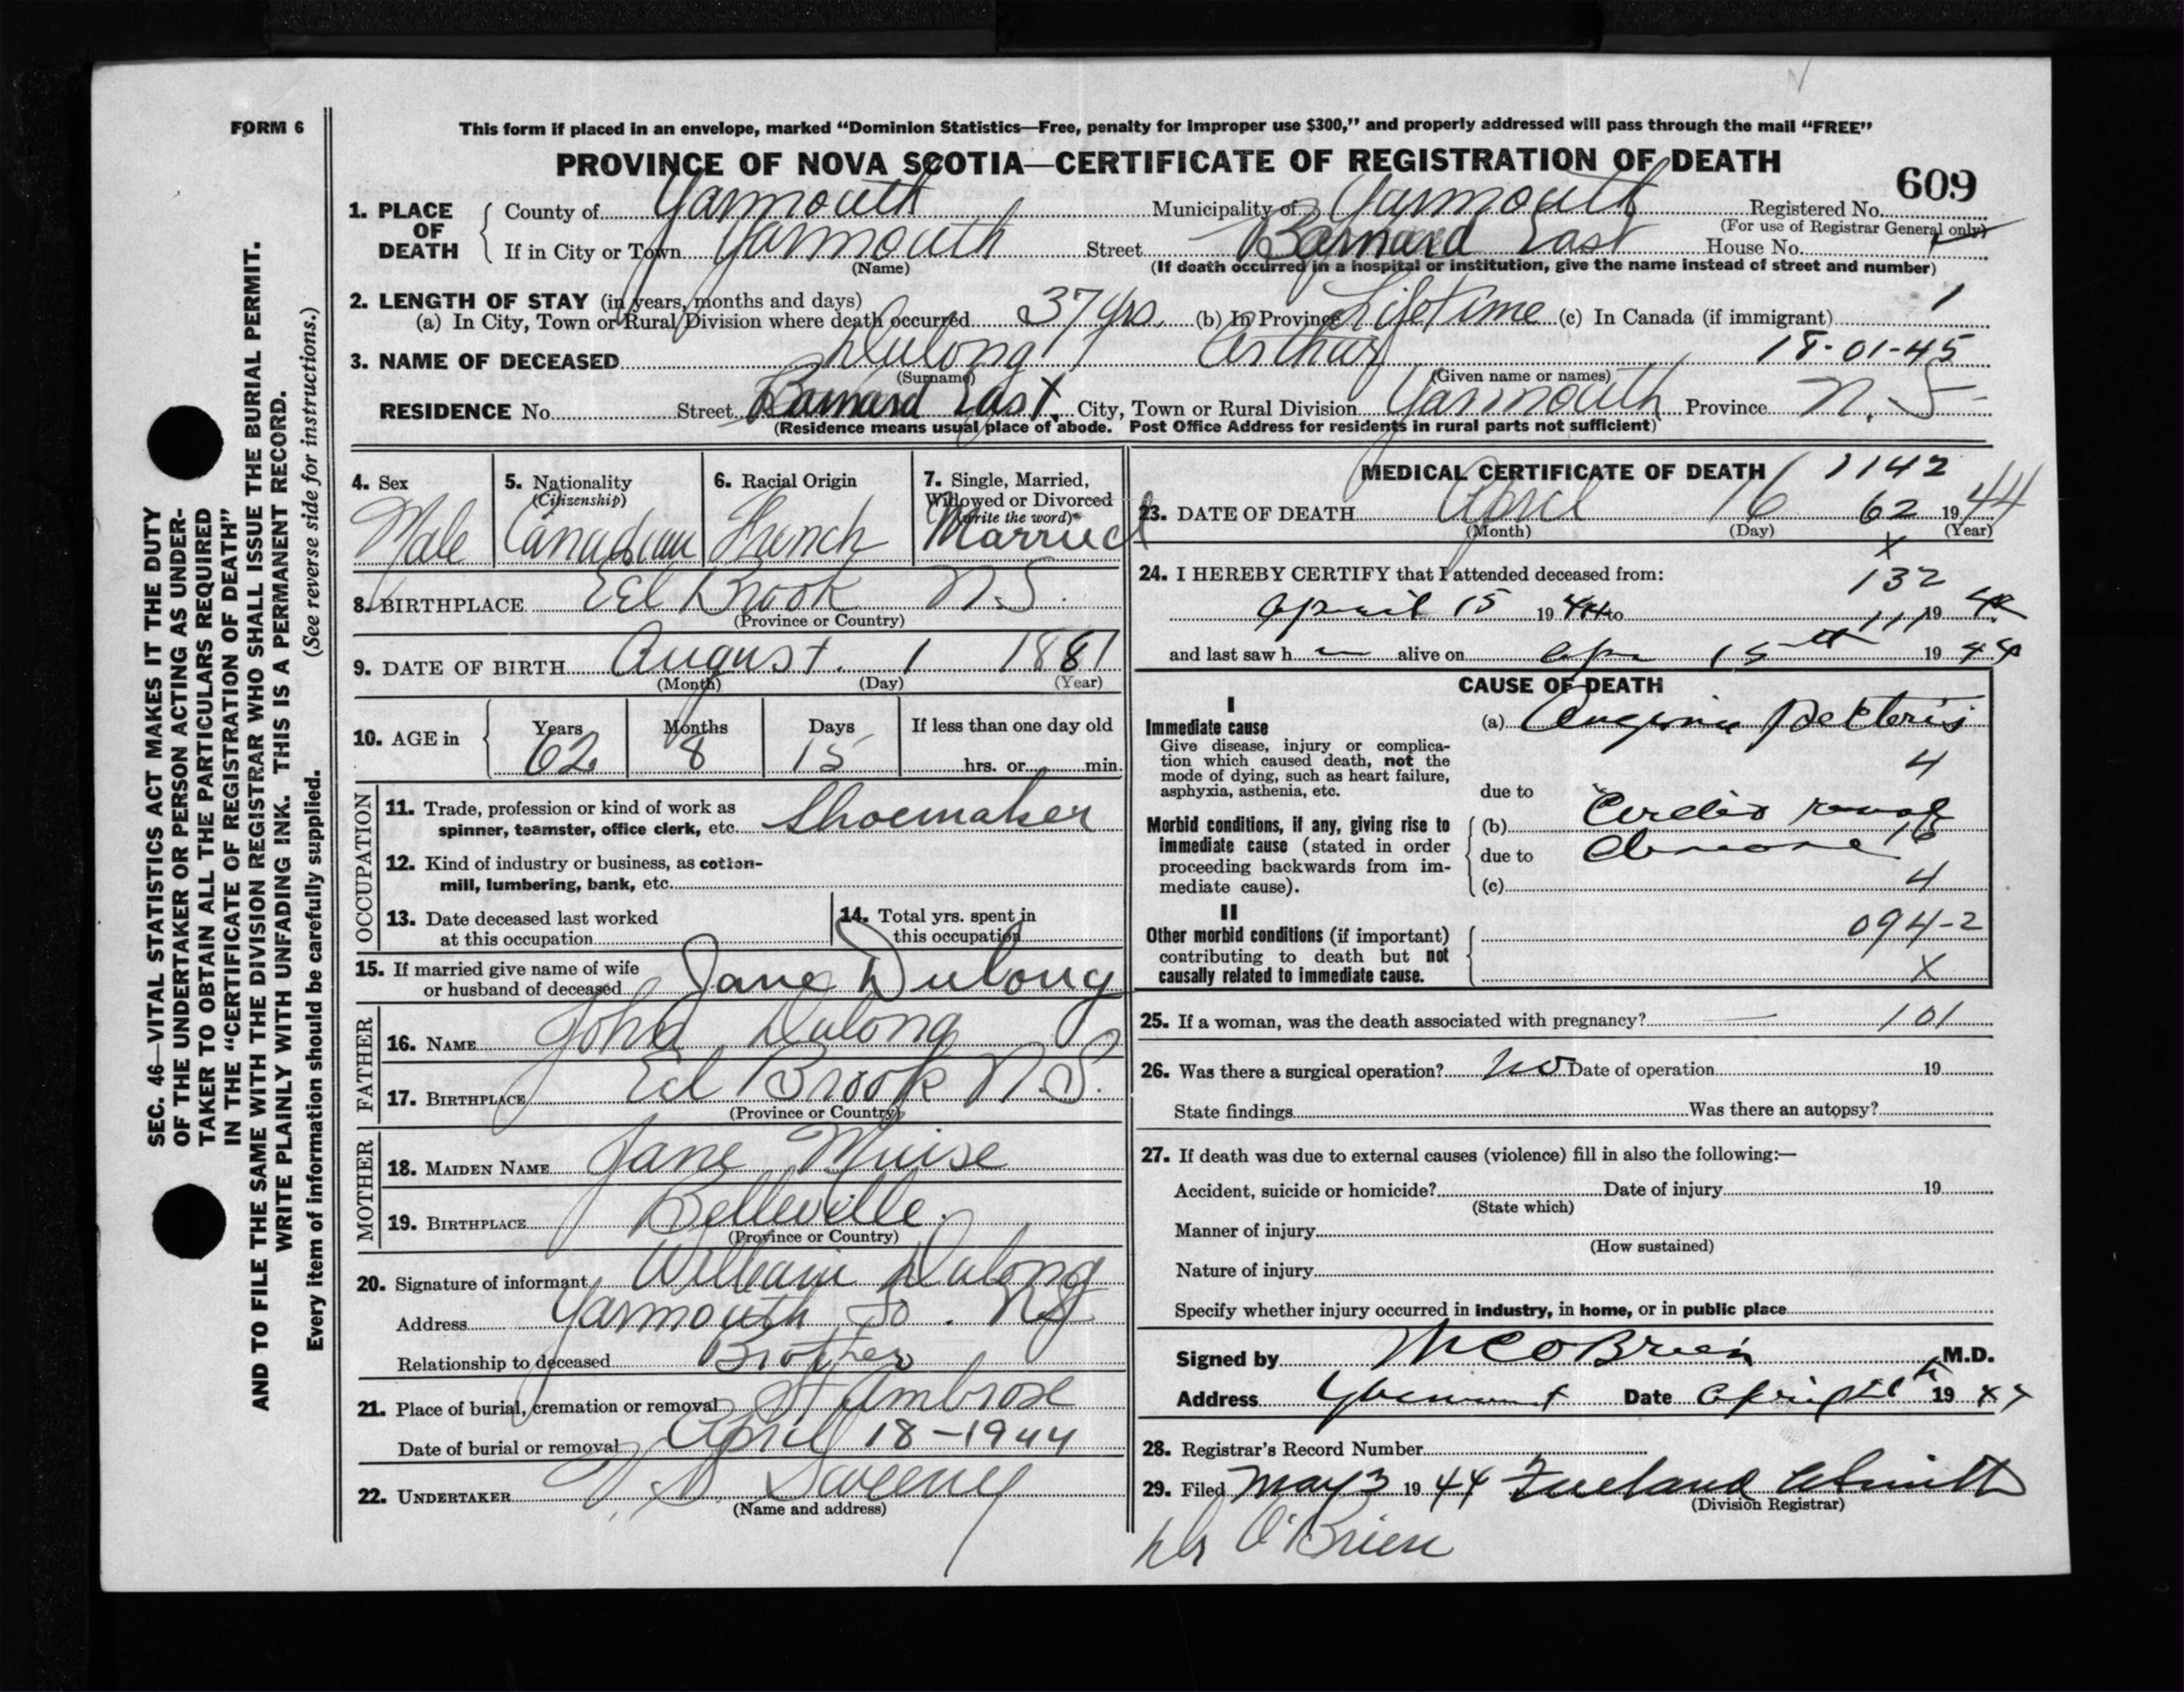 FORM 6
This form if placed in an envelope, marked “Dominion Statistics—Free, penalty for improper use $300,” and properly addressed will pass through the mail “FREE”
PROVINCE OF NOVA SCOTIA—CERTIFICATE OF REGISTRATION OF DEATH
609
1. PLACE OF DEATH
County of Yarmouth Municipality of Yarmouth Registered No.
(For use of Registrar General only)
If in City or Town Yarmouth Street Barnard East House No.
(Name)
(If death occurred in a hospital or institution, give the name instead of street and number)
2. LENGTH OF STAY (in years, months and days)
(a) In City, Town or Rural Division where death occurred 37 yrs. (b) In Province Lifetime (c) In Canada (if immigrant)
3. NAME OF DECEASED Dulong Arthur 18-01-45
(Surname) (Given name or names)
RESIDENCE No. Street Barnard East. City, Town or Rural Division Yarmouth Province N.S.
(Residence means usual place of abode. Post Office Address for residents in rural parts not sufficient)
4. Sex Male
5. Nationality (Citizenship) Canadian
6. Racial Origin French
7. Single, Married, Widowed or Divorced (Write the word) Married
8. BIRTHPLACE Eel Brook N.S.
(Province or Country)
9. DATE OF BIRTH August 1 1881
(Month) (Day) (Year)
10. AGE in Years 62 Months 8 Days 15 If less than one day old
hrs. or min.
OCCUPATION
11. Trade, profession or kind of work as
spinner, teamster, office clerk, etc. Shoemaker
12. Kind of industry or business, as cotton-
mill, lumbering, bank, etc.
13. Date deceased last worked
at this occupation
14. Total yrs. spent in
this occupation
15. If married give name of wife
or husband of deceased Jane Dulong
FATHER
16. NAME John Dulong
17. BIRTHPLACE Eel Brook N.S.
(Province or Country)
MOTHER
18. MAIDEN NAME Jane Muise
19. BIRTHPLACE Belleville.
(Province or Country)
20. Signature of informant William Dulong
Address Yarmouth So. NS
Relationship to deceased Brother
21. Place of burial, cremation or removal St Ambrose
Date of burial or removal April 18-1944
22. UNDERTAKER V. S. Sweeney
(Name and address)
MEDICAL CERTIFICATE OF DEATH 1142
23. DATE OF DEATH April 16 62 1944
(Month) (Day) (Year)
X
24. I HEREBY CERTIFY that I attended deceased from:
132
April 15 1944 to 111 19 44
and last saw h alive on Apr 15th 19 44
CAUSE OF DEATH
I
Immediate cause
Give disease, injury or complica-
tion which caused death, not the
mode of dying, such as heart failure,
asphyxia, asthenia, etc.
(a) Angina Pectoris
4
due to
Morbid conditions, if any, giving rise to
immediate cause (stated in order
proceeding backwards from im-
mediate cause).
(b) Cardio
due to 16
(c) 4
II
Other morbid conditions (if important)
contributing to death but not
causally related to immediate cause.
094-2
X
25. If a woman, was the death associated with pregnancy? 101
26. Was there a surgical operation? no Date of operation 19
State findings Was there an autopsy?
27. If death was due to external causes (violence) fill in also the following:—
Accident, suicide or homicide? Date of injury 19
(State which)
Manner of injury
(How sustained)
Nature of injury
Specify whether injury occurred in industry, in home, or in public place
Signed by M C O'Brien M.D.
Address Yarmouth Date April 19 44
28. Registrar's Record Number
29. Filed May 3 19 44
(Division Registrar)
Dr O'Brien
SEC. 46—VITAL STATISTICS ACT MAKES IT THE DUTY
OF THE UNDERTAKER OR PERSON ACTING AS UNDER-
TAKER TO OBTAIN ALL THE PARTICULARS REQUIRED
IN THE “CERTIFICATE OF REGISTRATION OF DEATH”
AND TO FILE THE SAME WITH THE DIVISION REGISTRAR WHO SHALL ISSUE THE BURIAL PERMIT.
WRITE PLAINLY WITH UNFADING INK. THIS IS A PERMANENT RECORD.
Every item of information should be carefully supplied. (See reverse side for instructions.)